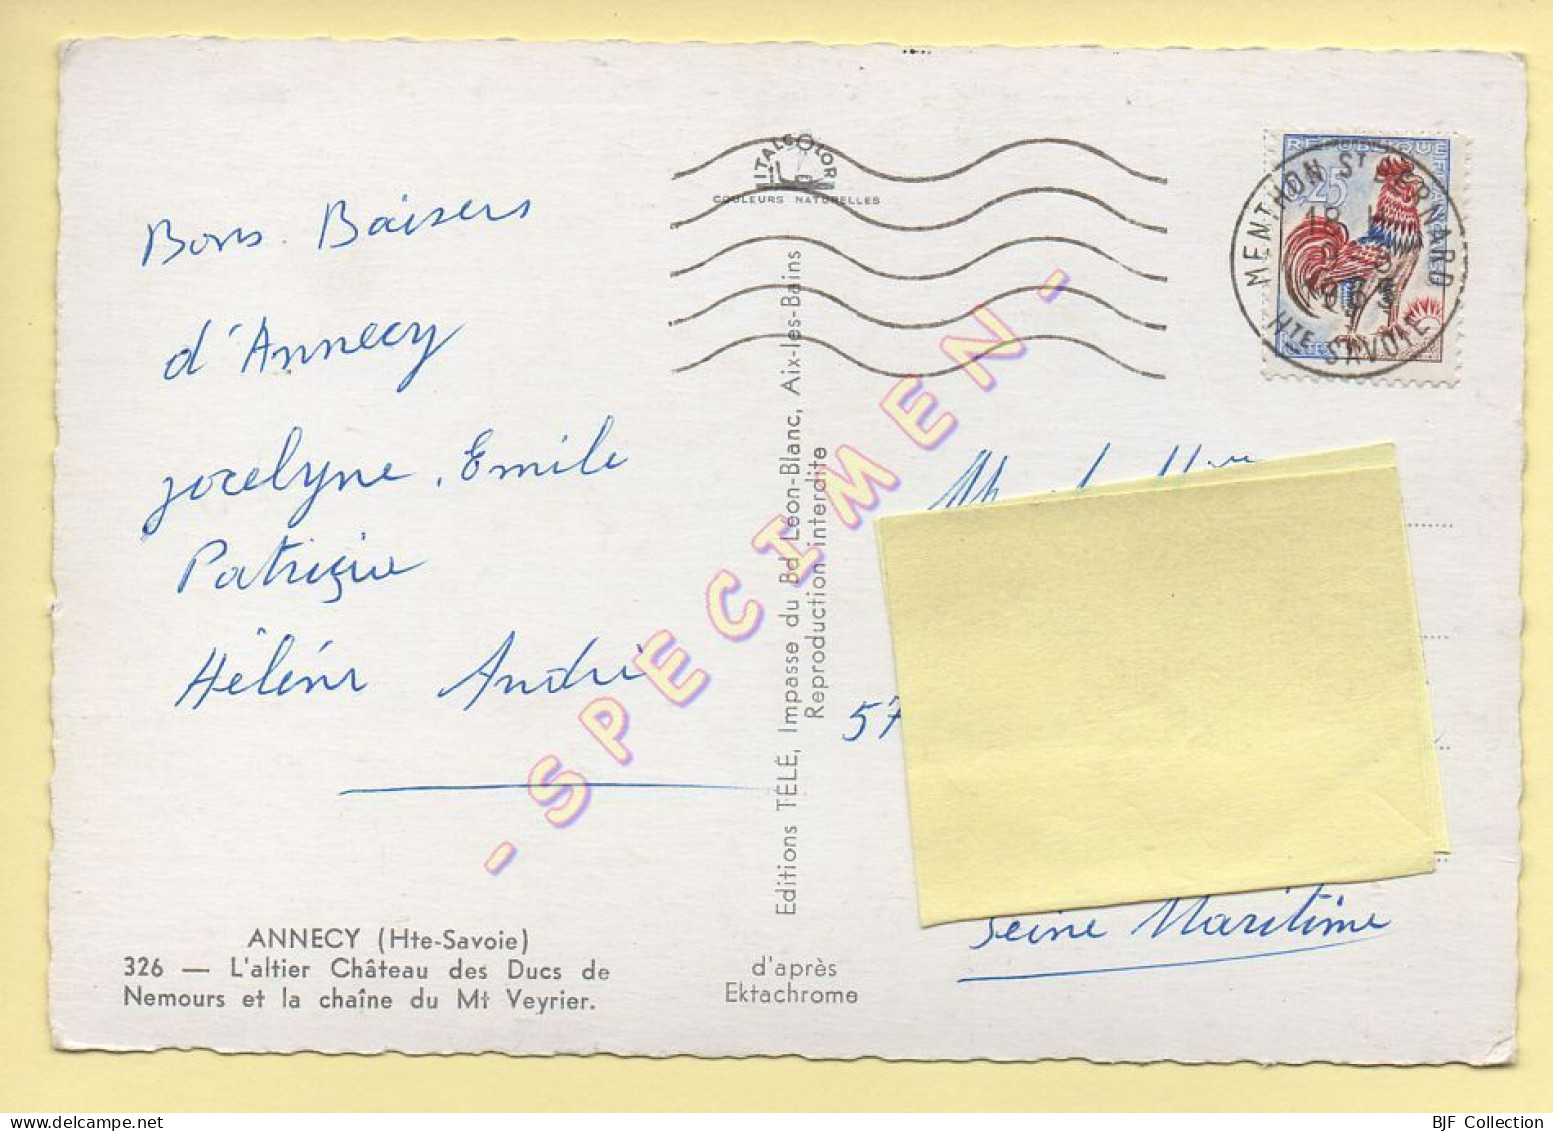 Bons Baisers
d'Annecy
jocelyne, Emile
Patrizia
Hélène André
ANNECY (Hte-Savoie)
326 — L'altier Château des Ducs de
Nemours et la chaîne du Mt Veyrier.
ITALCOLOR
COULEURS NATURELLES
Editions TÉLÉ, Impasse du Bd Léon-Blanc, Aix-les-Bains
Reproduction interdite
d'après
Ektachrome
- SPECIMEN -
REPUBLIQUE FRANÇAISE
0,25
POSTES
MENTHON ST BERNARD
18 H
8
HTE SAVOIE
57
Seine Maritime
BJF Collection